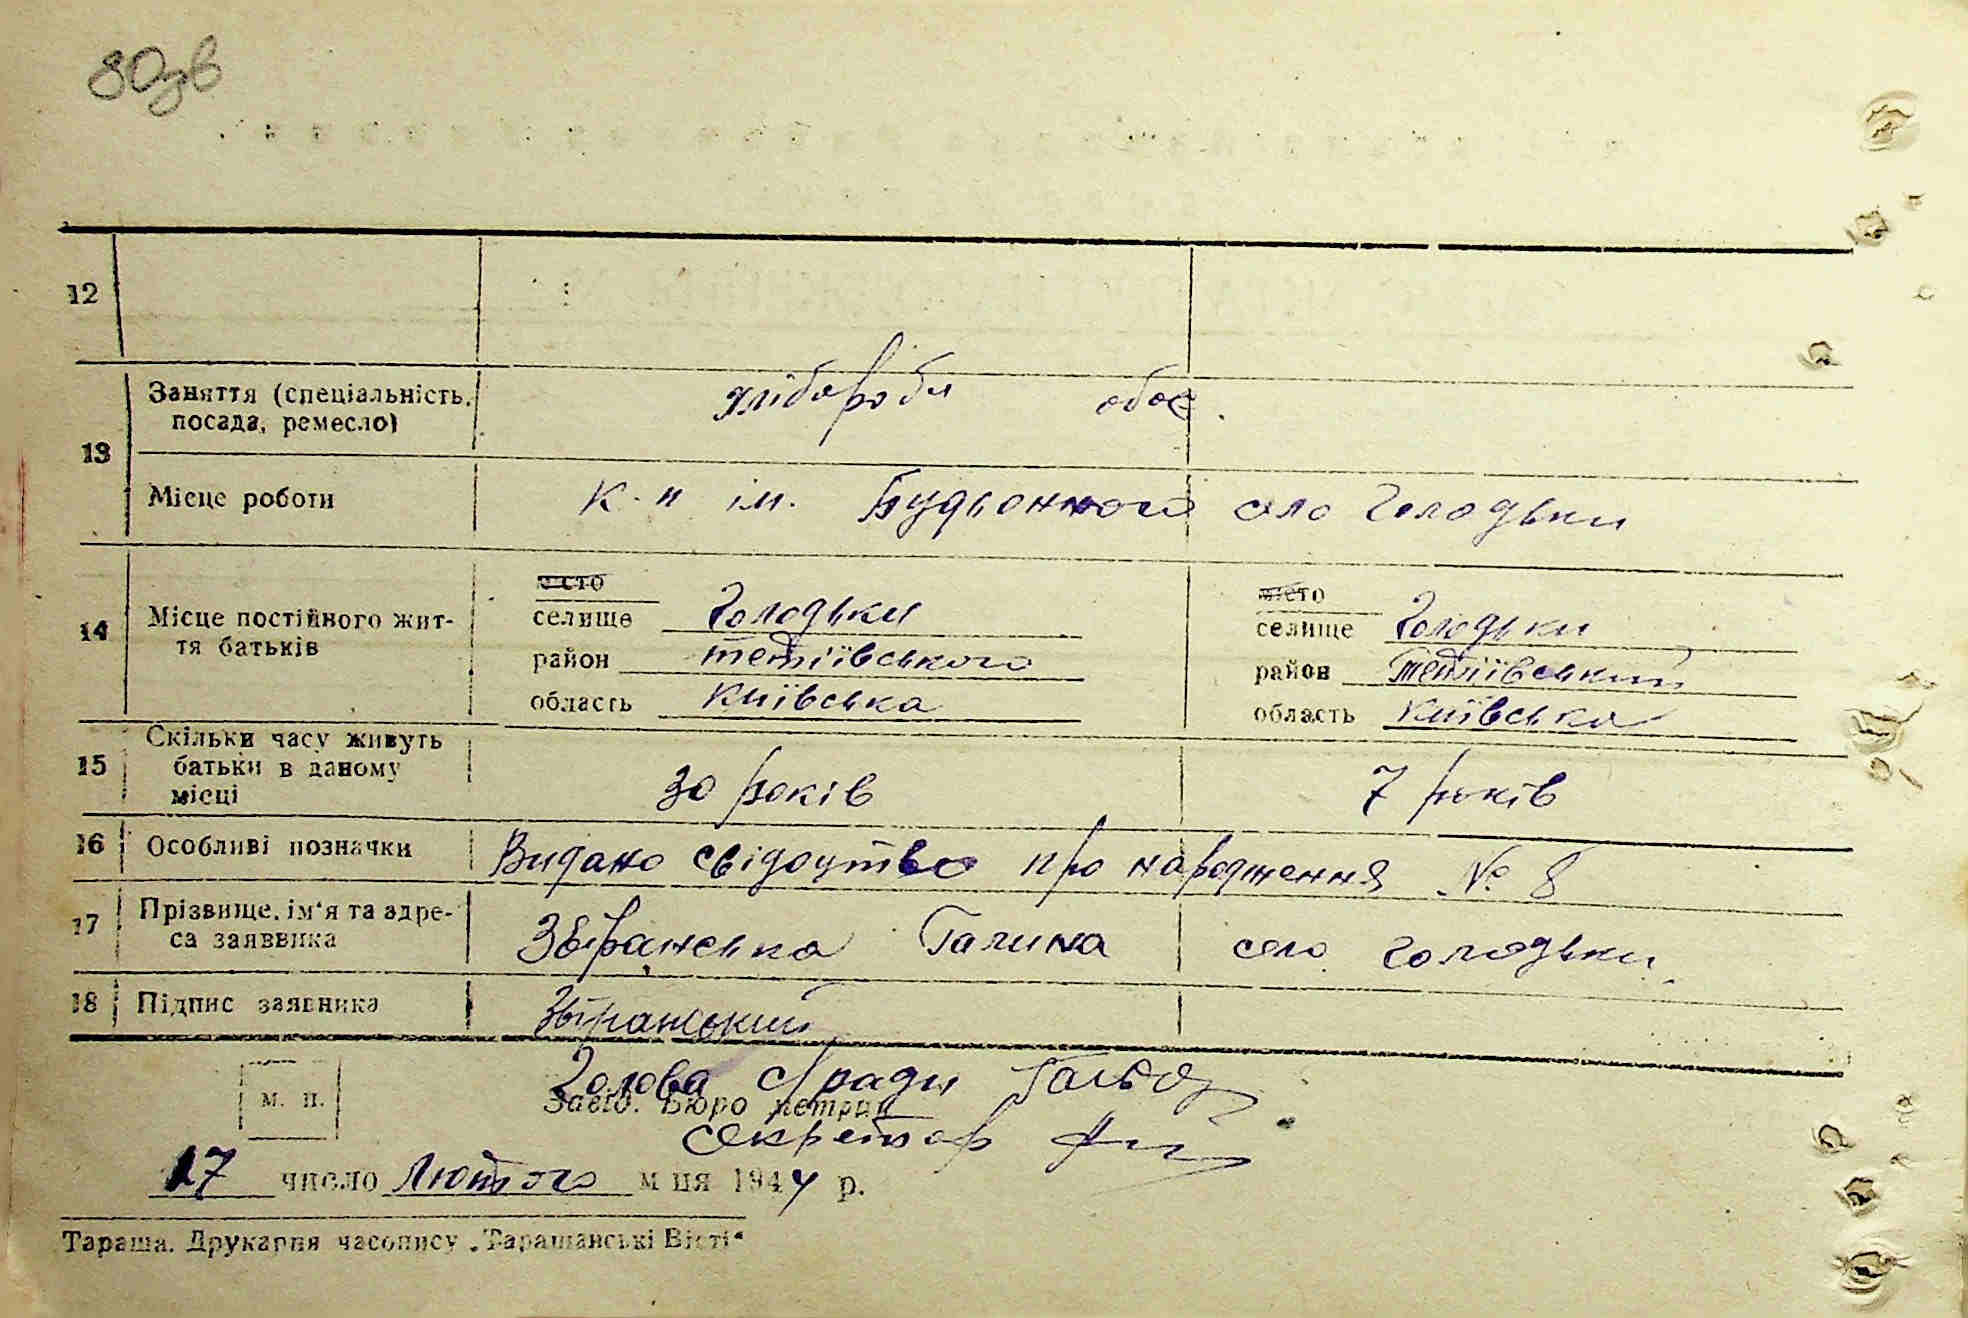 80зв
12
Заняття (спеціальність, посада, ремесло) хлібороби обоє.
13
Місце роботи К-п ім. Будьонного село Голодьки
14 Місце постійного життя батьків
місто місто
селище Голодьки селище Голодьки
район тетіївського район Тетіївський
область Київська область Київська
15 Скільки часу живуть батьки в даному місці 30 років 7 років
16 Особливі позначки Видано свідоцтво про народження № 8
17 Прізвище, ім'я та адреса заявника Збіранська Галина село Голодьки
18 Підпис заявника Збіранський
Голова с/ради
м. п. Завід. Бюро метрик
секретар
17 число Лютого м-ця 1944 р.
Тараща. Друкарня часопису „Таращанські Вісті"